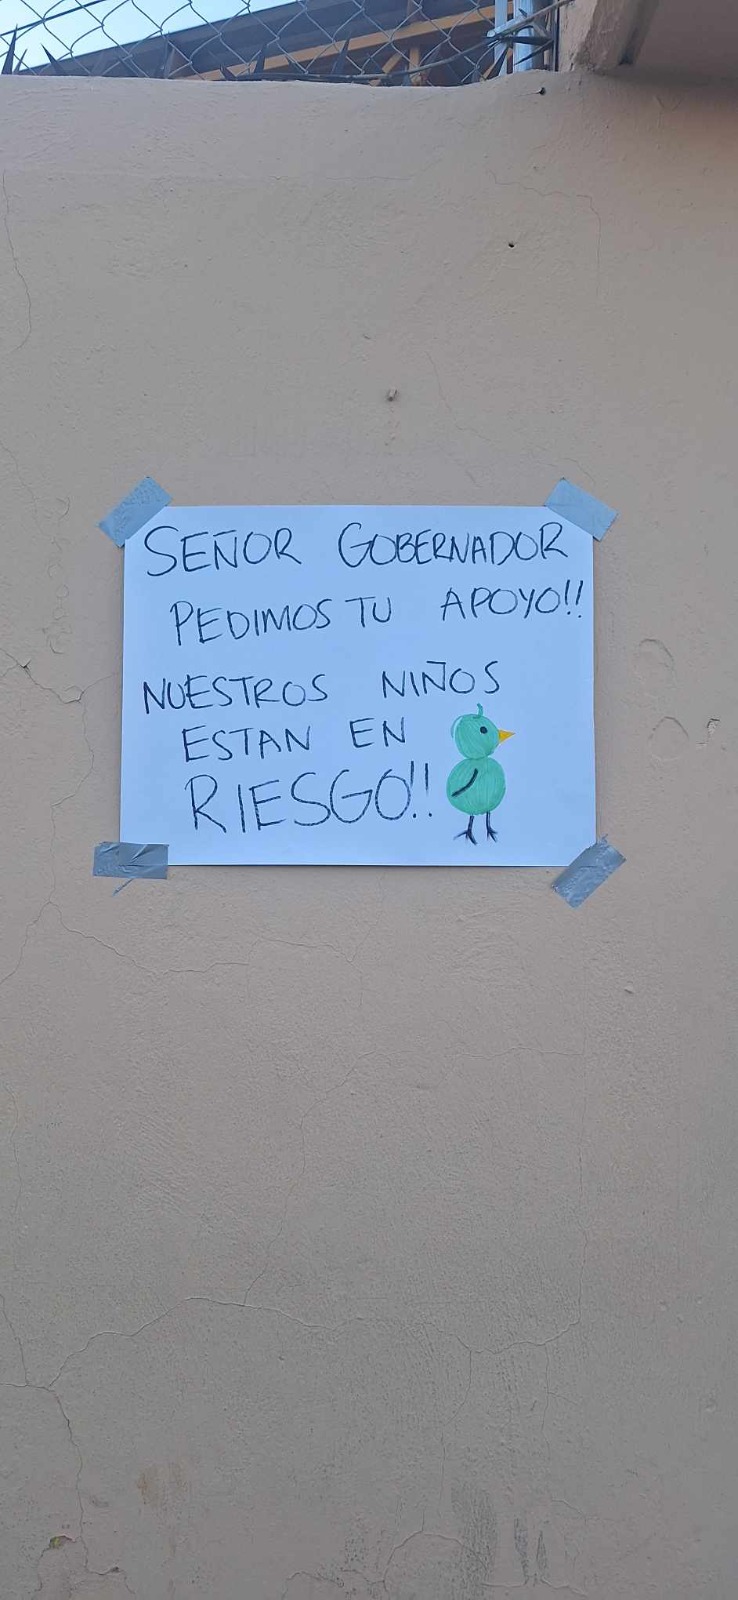 SEÑOR GOBERNADOR
PEDIMOS TU APOYO!!
NUESTROS NIÑOS
ESTAN EN
RIESGO!!